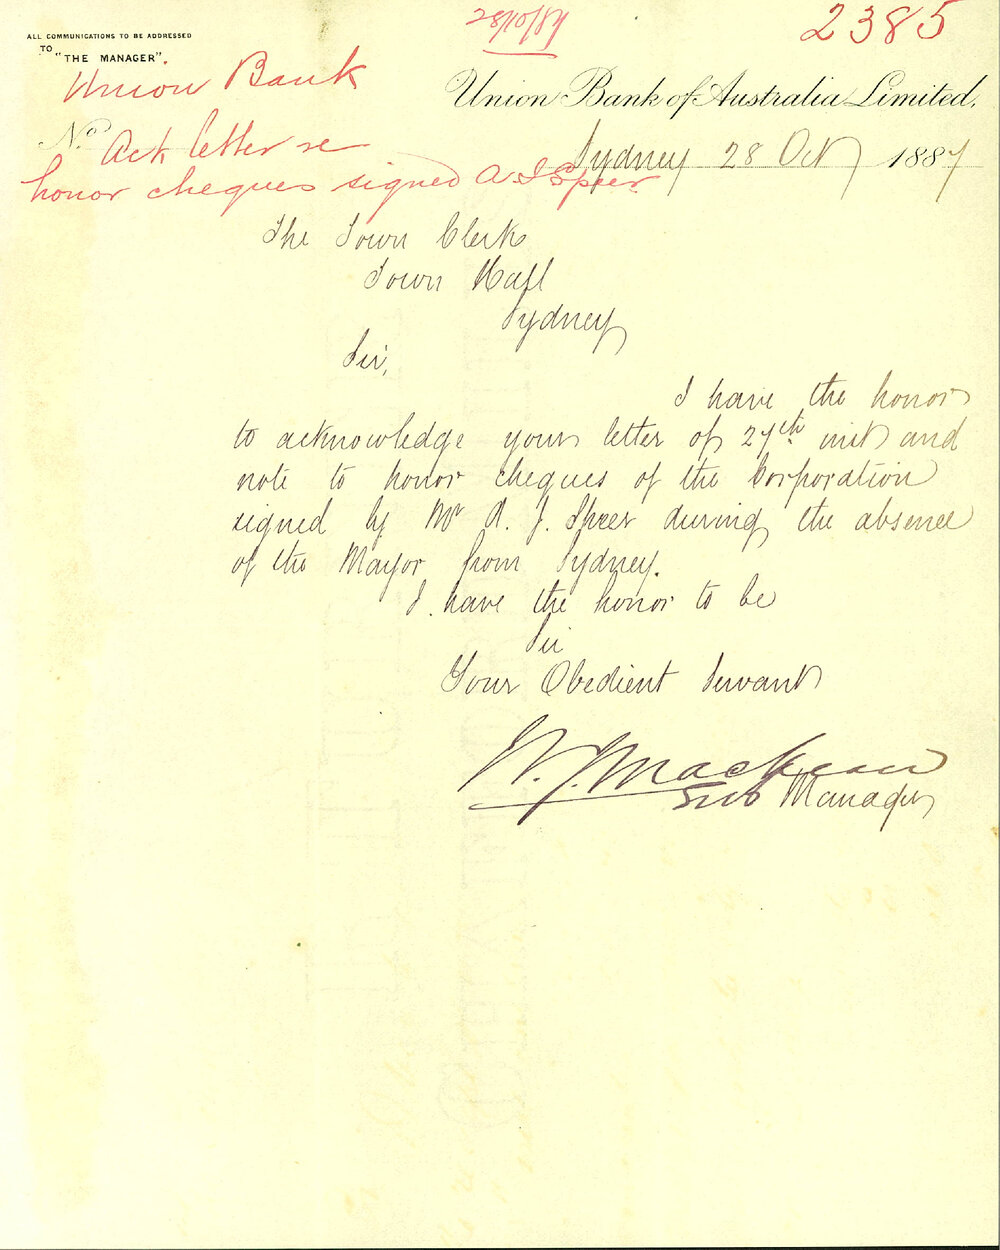 ALL COMMUNICATIONS TO BE ADDRESSED
TO "THE MANAGER".
28/10/87
2385
Union Bank
Union Bank of Australia Limited.
No
Ack letter re
honor cheques signed A J Speer
Sydney 28 Oct 1887
The Town Clerk
Town Hall
Sydney
Sir,
I have the honor
to acknowledge your letter of 27th inst and
note to honor cheques of the Corporation
signed by Mr A. J. Speer during the absence
of the Mayor from Sydney.
I have the honor to be
Sir
Your Obedient Servant
W. J. Mackean
Sub Manager